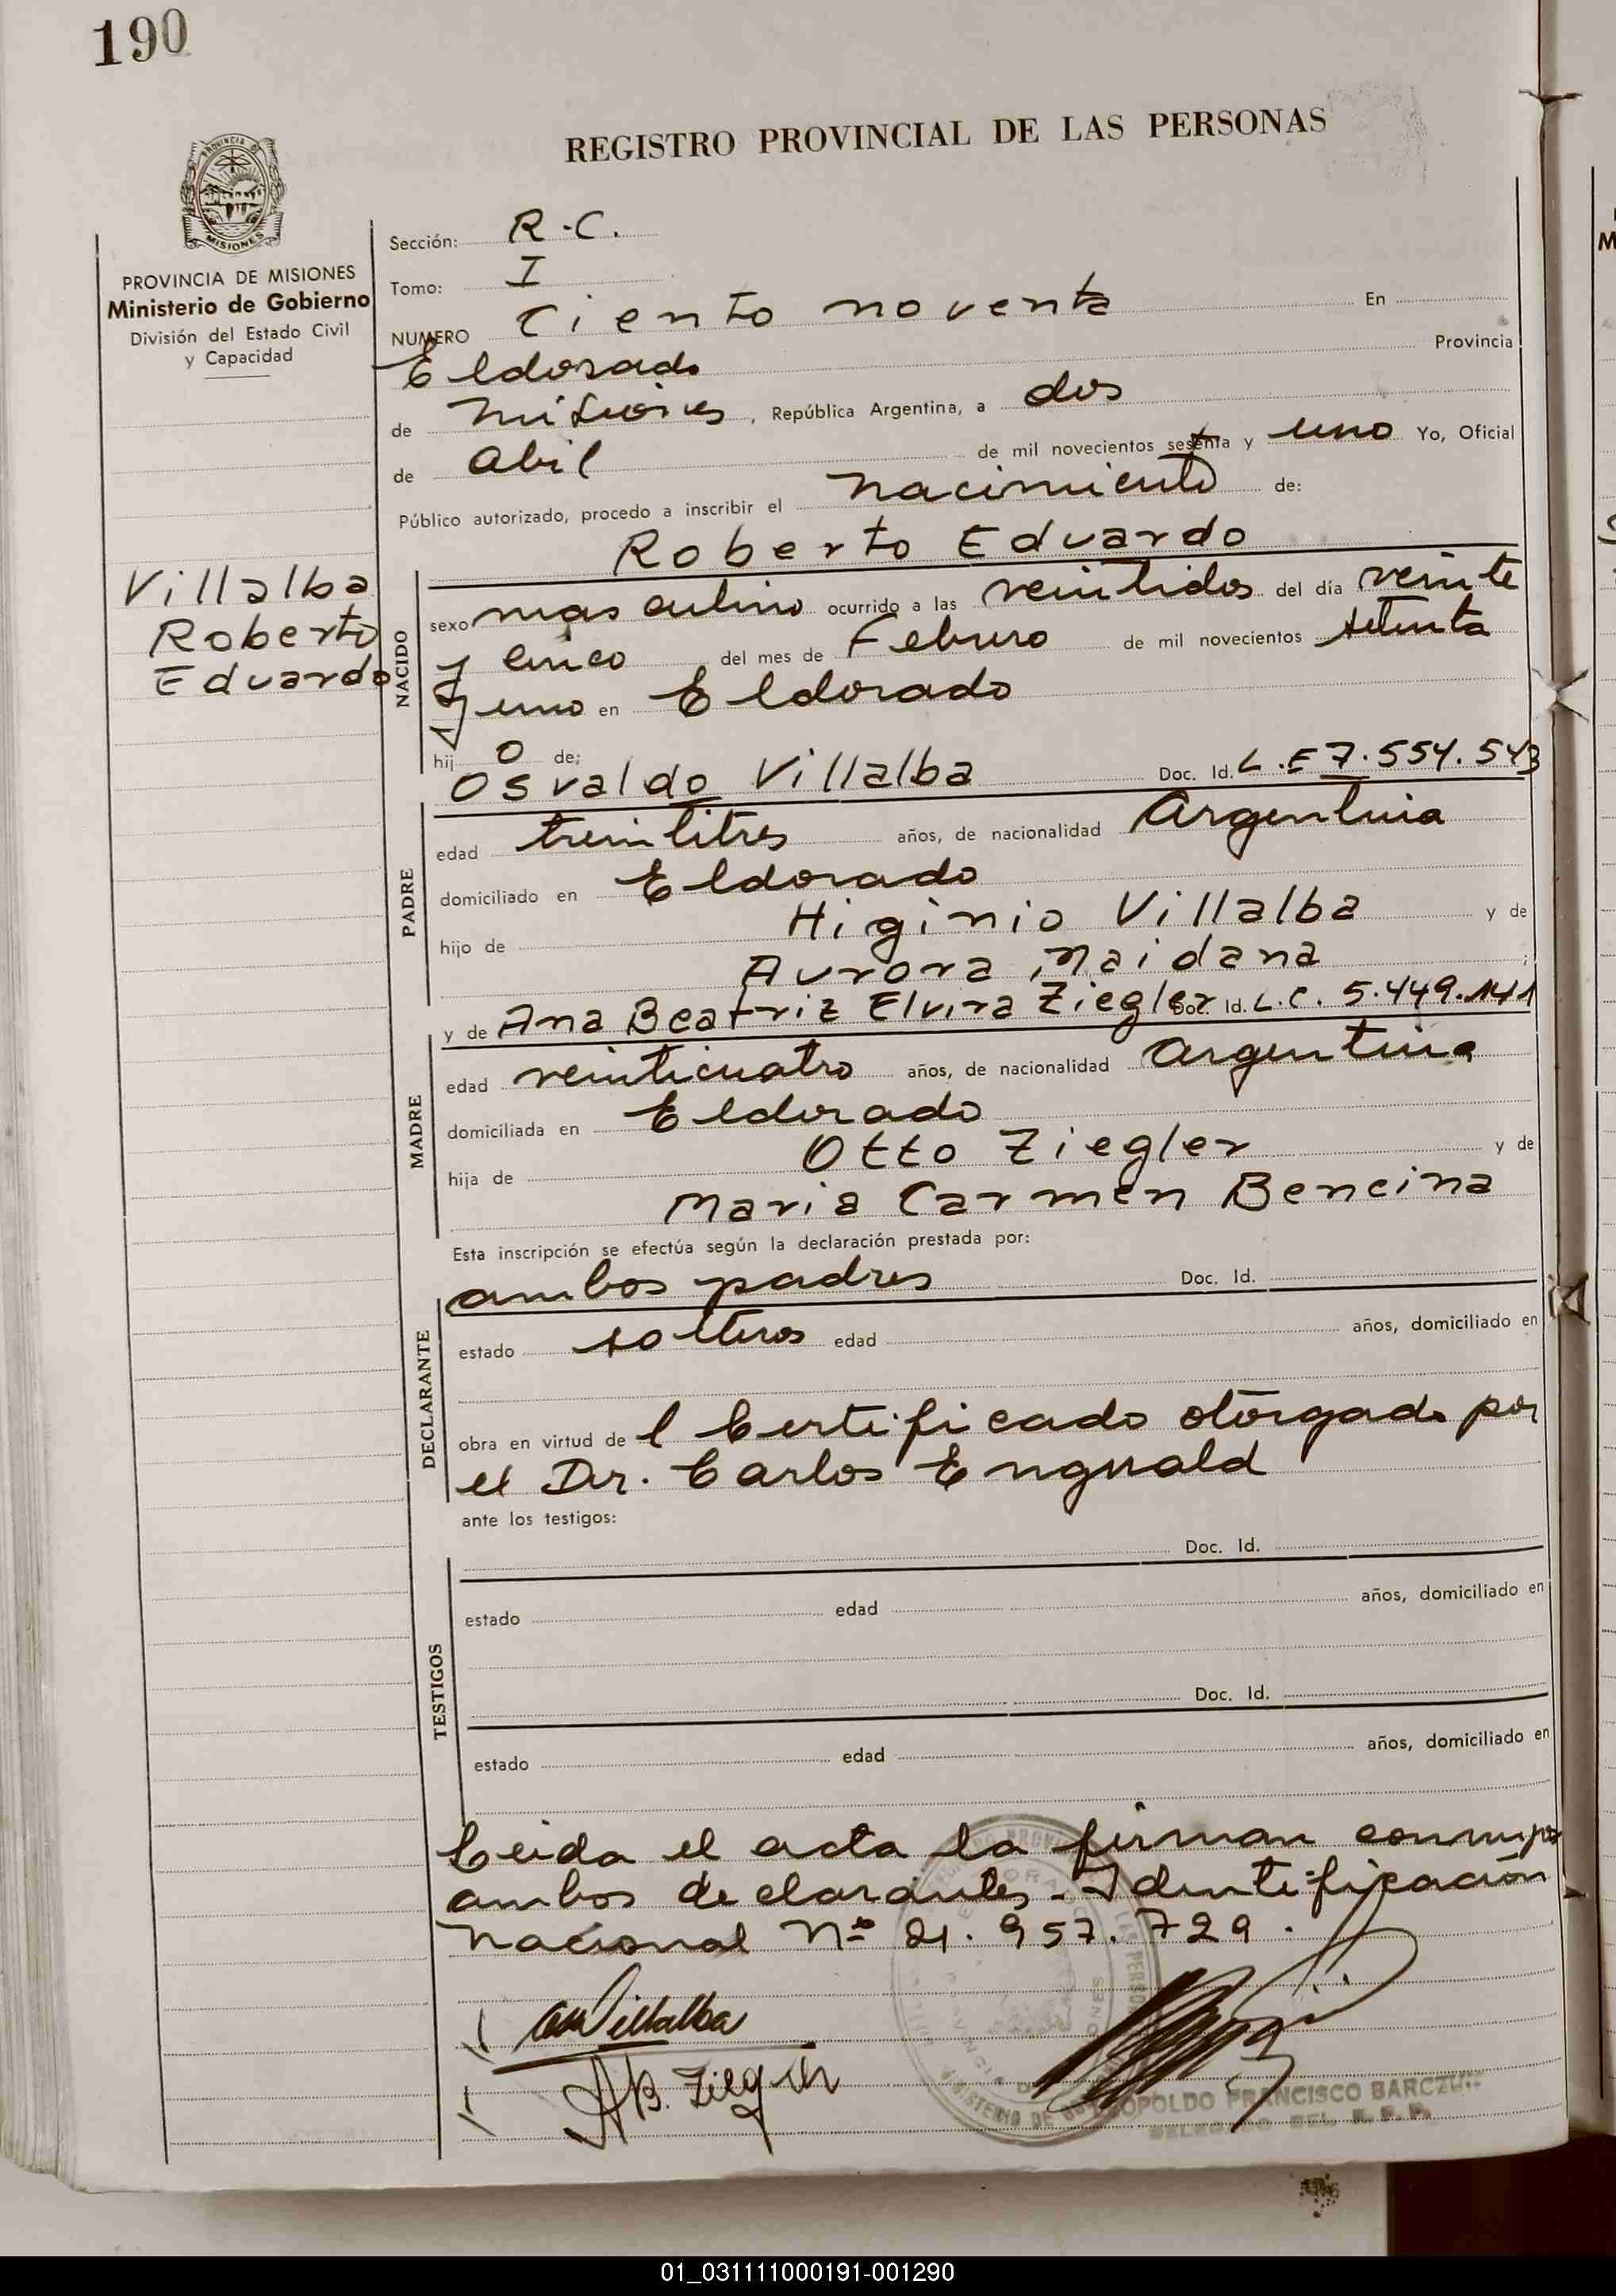 190
REGISTRO PROVINCIAL DE LAS PERSONAS
PROVINCIA DE MISIONES
Ministerio de Gobierno
División del Estado Civil
y Capacidad
Sección: R.C.
Tomo: I
NUMERO Ciento noventa En
Eldorado Provincia
de Misiones, República Argentina, a dos
de Abril de mil novecientos setenta y uno Yo, Oficial
Público autorizado, procedo a inscribir el nacimiento de:
Roberto Eduardo
Villalba
Roberto
Eduardo
NACIDO
sexo masculino ocurrido a las veintidos del día veinte
y cinco del mes de Febrero de mil novecientos setenta
y uno en Eldorado
hijo de;
Osvaldo Villalba Doc. Id. L.E 7.554.543
PADRE
edad treintitres años, de nacionalidad Argentina
domiciliado en Eldorado
hijo de Higinio Villalba y de
Aurora Maidana ;
y de Ana Beatriz Elvira Ziegler Doc. Id. L.C. 5.449.141
MADRE
edad veinticuatro años, de nacionalidad Argentina
domiciliada en Eldorado
hija de Otto Ziegler y de
Maria Carmen Bencina
Esta inscripción se efectúa según la declaración prestada por:
ambos padres Doc. Id.
DECLARANTE
estado solteros edad años, domiciliado en
obra en virtud de l Certificado otorgado por
el Dr. Carlos Enguald
ante los testigos:
Doc. Id.
TESTIGOS
estado edad años, domiciliado en
Doc. Id.
estado edad años, domiciliado en
Leida el acta la firman conmigo
ambos declarantes. - Identificación
Nacional Nº 21.957.729.
Villalba
AB. Ziegler
LEOPOLDO FRANCISCO BARCZUK
DELEGADO DEL R.P.P.
01_031111000191-001290